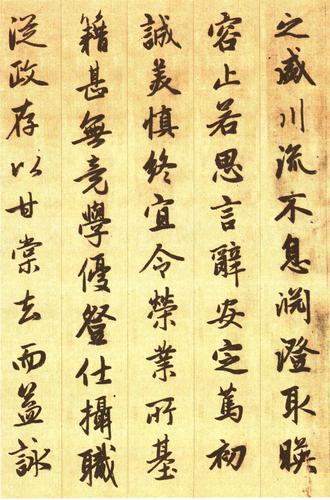 之盛川流不息淵澄取暎
容止若思言辭安定篤初
誠美慎終宜令榮業所基
籍甚無竟學優登仕攝職
從政存以甘棠去而益詠